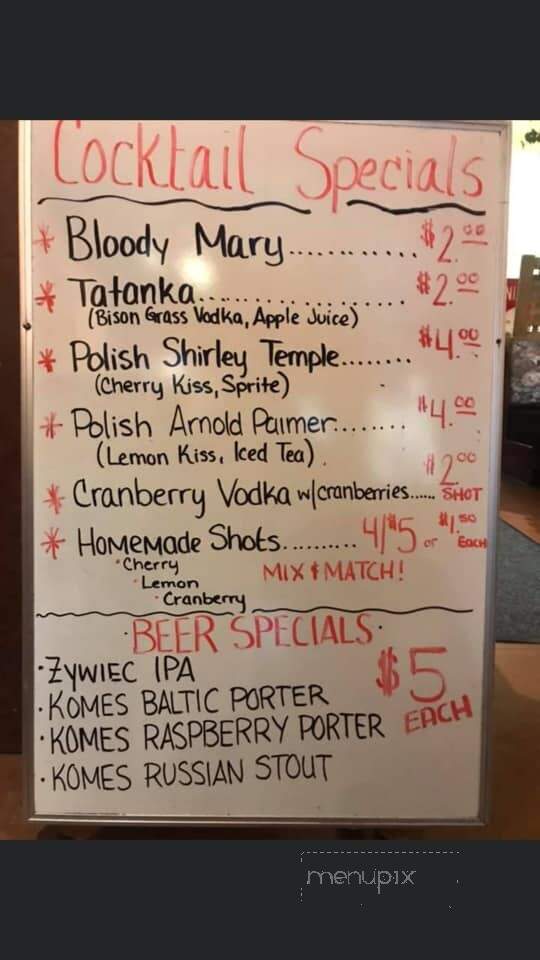 Cocktail Specials
* Bloody Mary............ $2.00
* Tatanka..................... $2.00
(Bison Grass Vodka, Apple Juice)
* Polish Shirley Temple........ $4.00
(Cherry Kiss, Sprite)
* Polish Arnold Palmer........ $4.00
(Lemon Kiss, Iced Tea)
* Cranberry Vodka w/cranberries...... $2.00 SHOT
* Homemade Shots.......... 4/$5 or $1.50 Each
· Cherry
MIX & MATCH!
· Lemon
· Cranberry
· BEER SPECIALS ·
· ŻYWIEC IPA
$5 EACH
· KOMES BALTIC PORTER
· KOMES RASPBERRY PORTER
· KOMES RUSSIAN STOUT
menupix